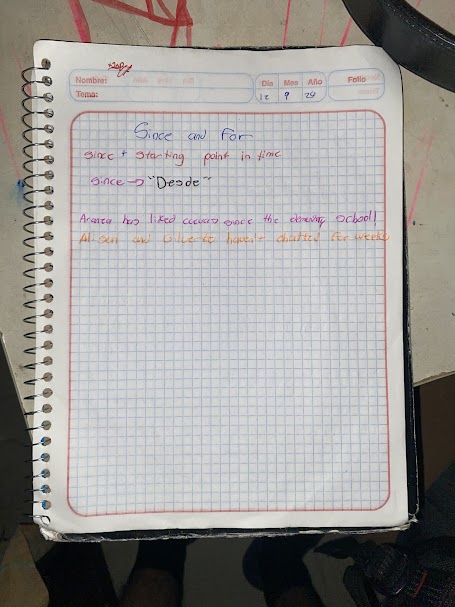 Nombre:
Tema:
Día Mes Año
12 9 24
Folio
Since and For
since + starting point in time
since → "Desde"
has liked since the school!
and haven't chatted for weeks